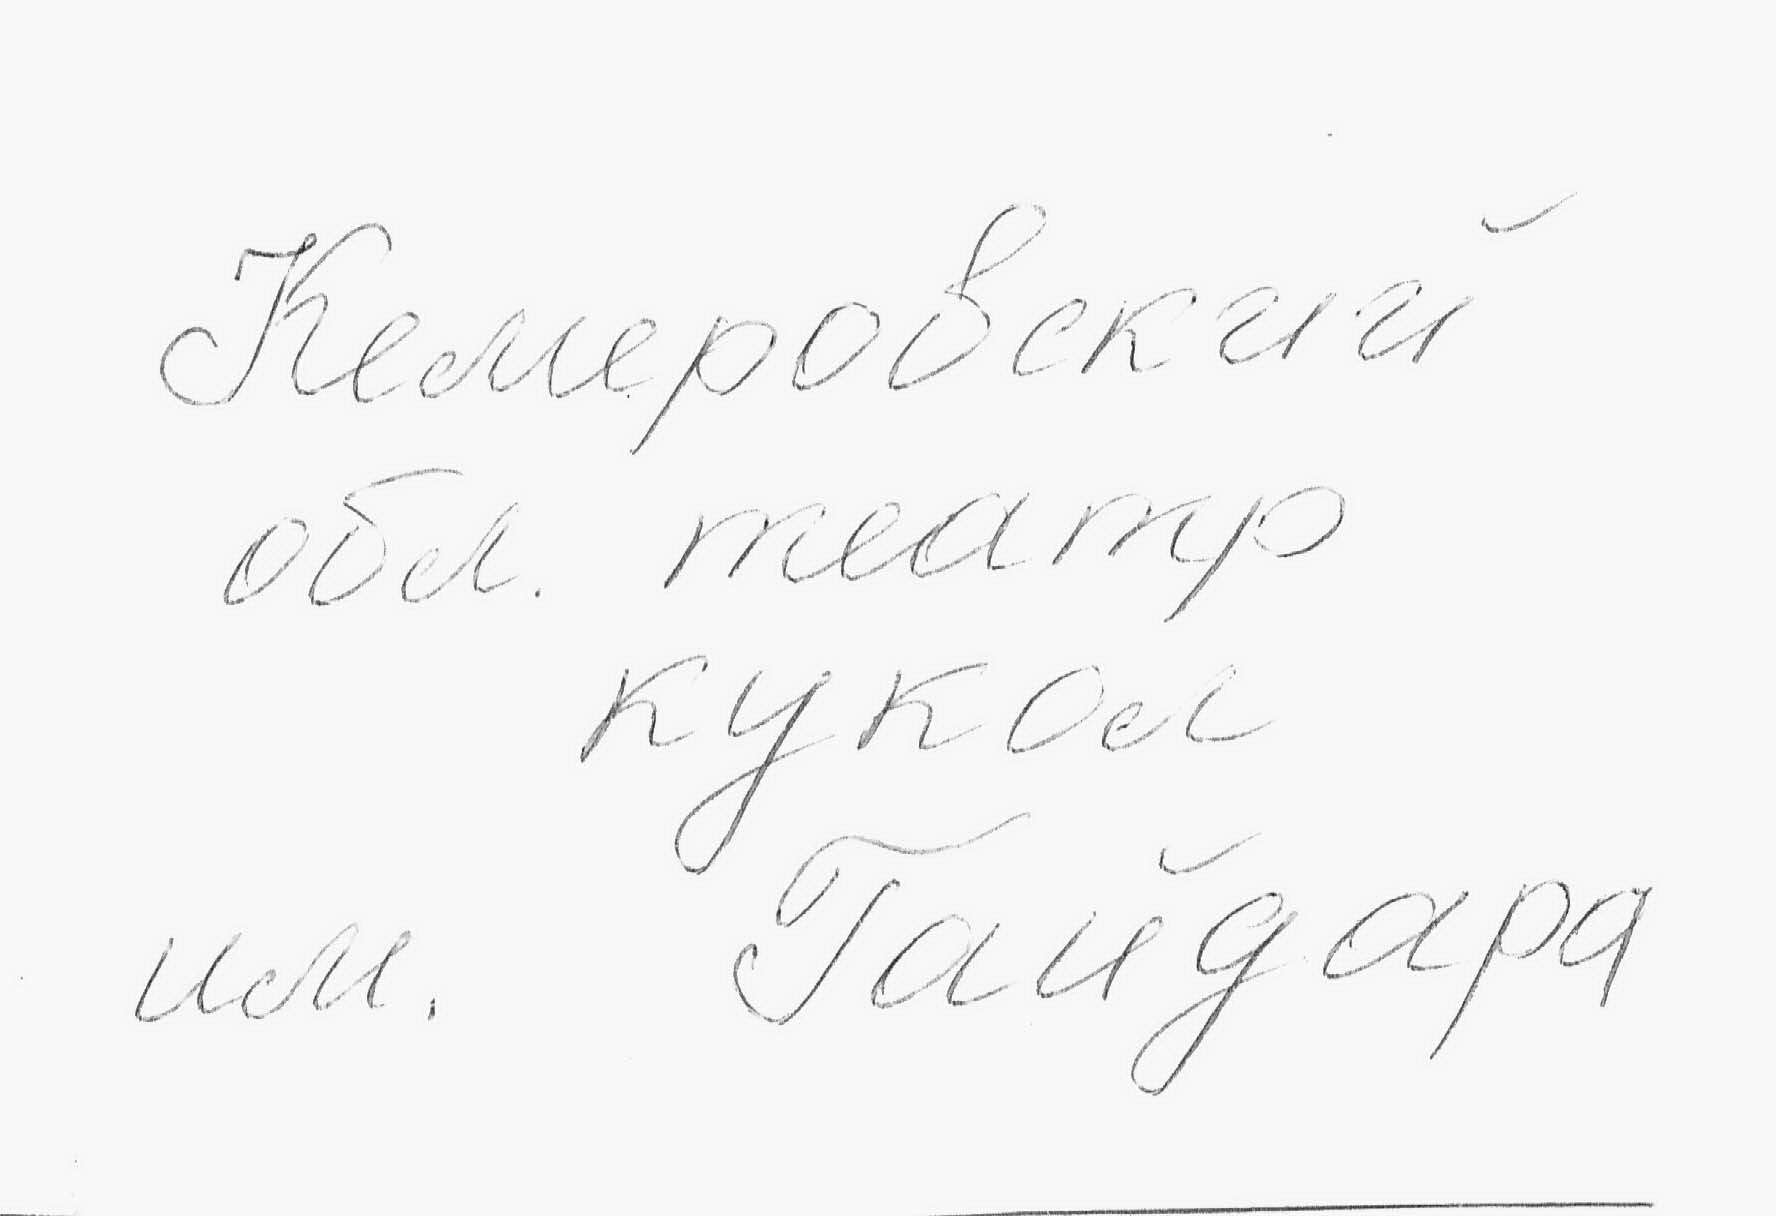 Кемеровский
обл. театр
кукол
им. Гайдара